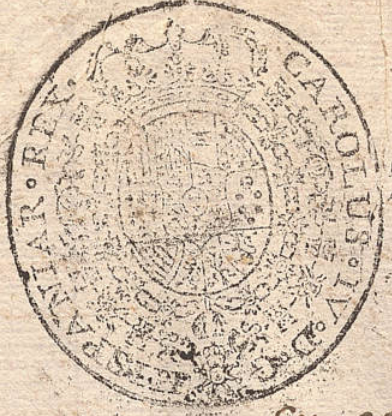 CAROLUS·IV·D·G· HISPANIAR·REX·